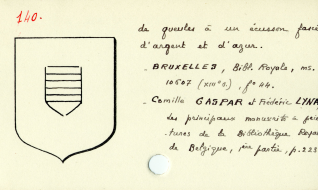 140.
de gueules à un écusson fascé
d'argent et d'azur.
- BRUXELLES, Bibl. Royale, ms.
10607 (XIIIe s.), fo 44.
- Camille GASPAR et Frédéric LYNA
des principaux manuscrits à pein-
tures de la Bibliothèque Royale
de Belgique, 1ère partie, p. 223